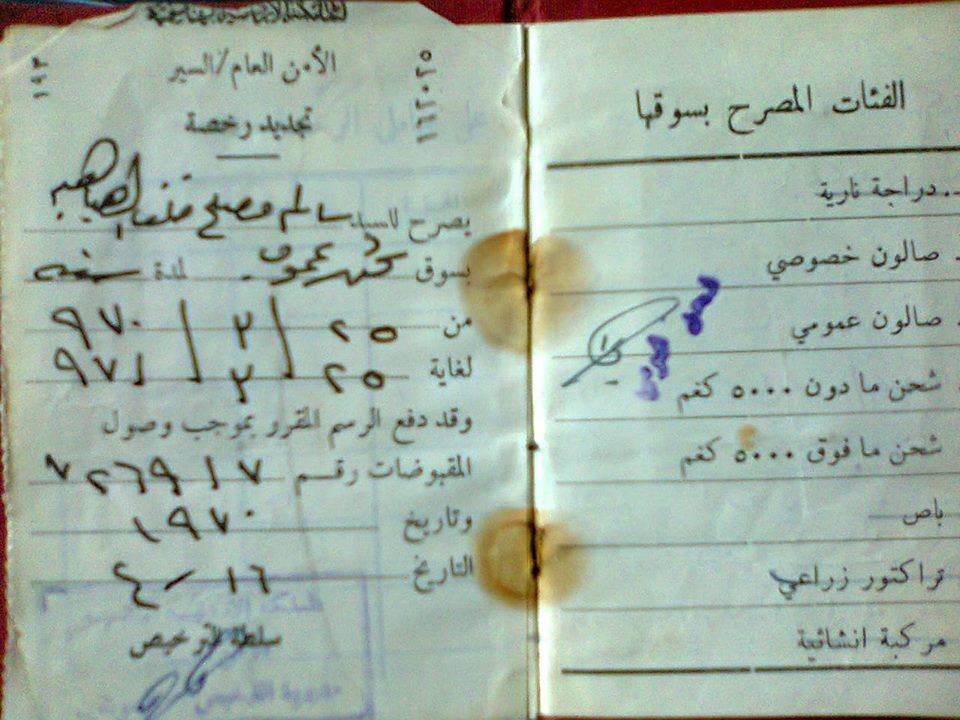 الفئات المصرح بسوقها
دراجة نارية
صالون خصوصي
صالون عمومي
شحن ما دون ٥٠٠٠ كغم
شحن ما فوق ٥٠٠٠ كغم
باص
تراكتور زراعي
مركبة انشائية
الأمن العام/السير
تجديد رخصة
يصرح للسيد سالم مفلح
بسوق لمدة سنه
من ٢٥ / ٣ / ٩٧٠
لغاية ٢٥ / ٣ / ٩٧١
وقد دفع الرسم المقرر بموجب وصول
المقبوضات رقم
وتاريخ ١٩٧٠
التاريخ ١٦ - ٤
سلطة الترخيص